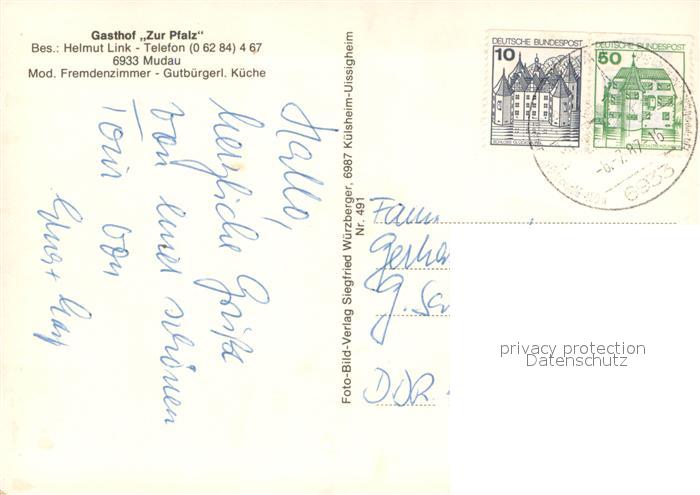 Gasthof „Zur Pfalz"
Bes.: Helmut Link - Telefon (0 62 84) 4 67
6933 Mudau
Mod. Fremdenzimmer - Gutbürgerl. Küche
Hallo,
herzliche Grüße
von einer schönen
Tour von
Foto-Bild-Verlag Siegfried Würzberger, 6987 Külsheim-Uissigheim
Nr. 491
10
DEUTSCHE BUNDESPOST
50
DEUTSCHE BUNDESPOST
-6.-7.87-16
6933
Fam
Gerha
G. Sc
DDR
privacy protection
Datenschutz